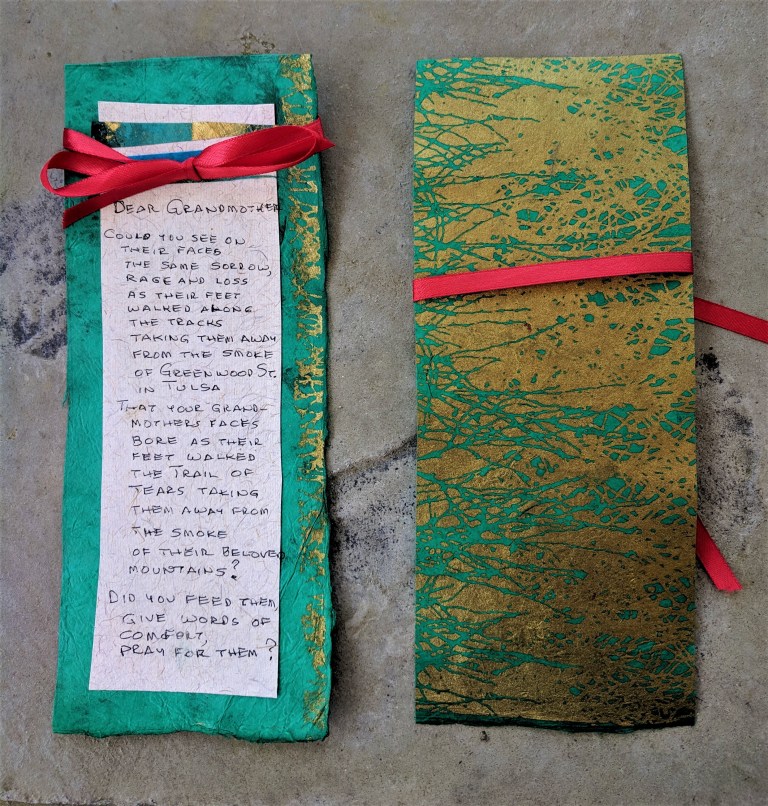 DEAR GRANDMOTHER
COULD YOU SEE ON
THEIR FACES
THE SAME SORROW,
RAGE AND LOSS
AS THEIR FEET
WALKED ALONG
THE TRACKS
TAKING THEM AWAY
FROM THE SMOKE
OF GREENWOOD ST.
IN TULSA
THAT YOUR GRAND-
MOTHERS FACES
BORE AS THEIR
FEET WALKED
THE TRAIL OF
TEARS TAKING
THEM AWAY FROM
THE SMOKE
OF THEIR BELOVED
MOUNTAINS?
DID YOU FEED THEM,
GIVE WORDS OF
COMFORT,
PRAY FOR THEM?